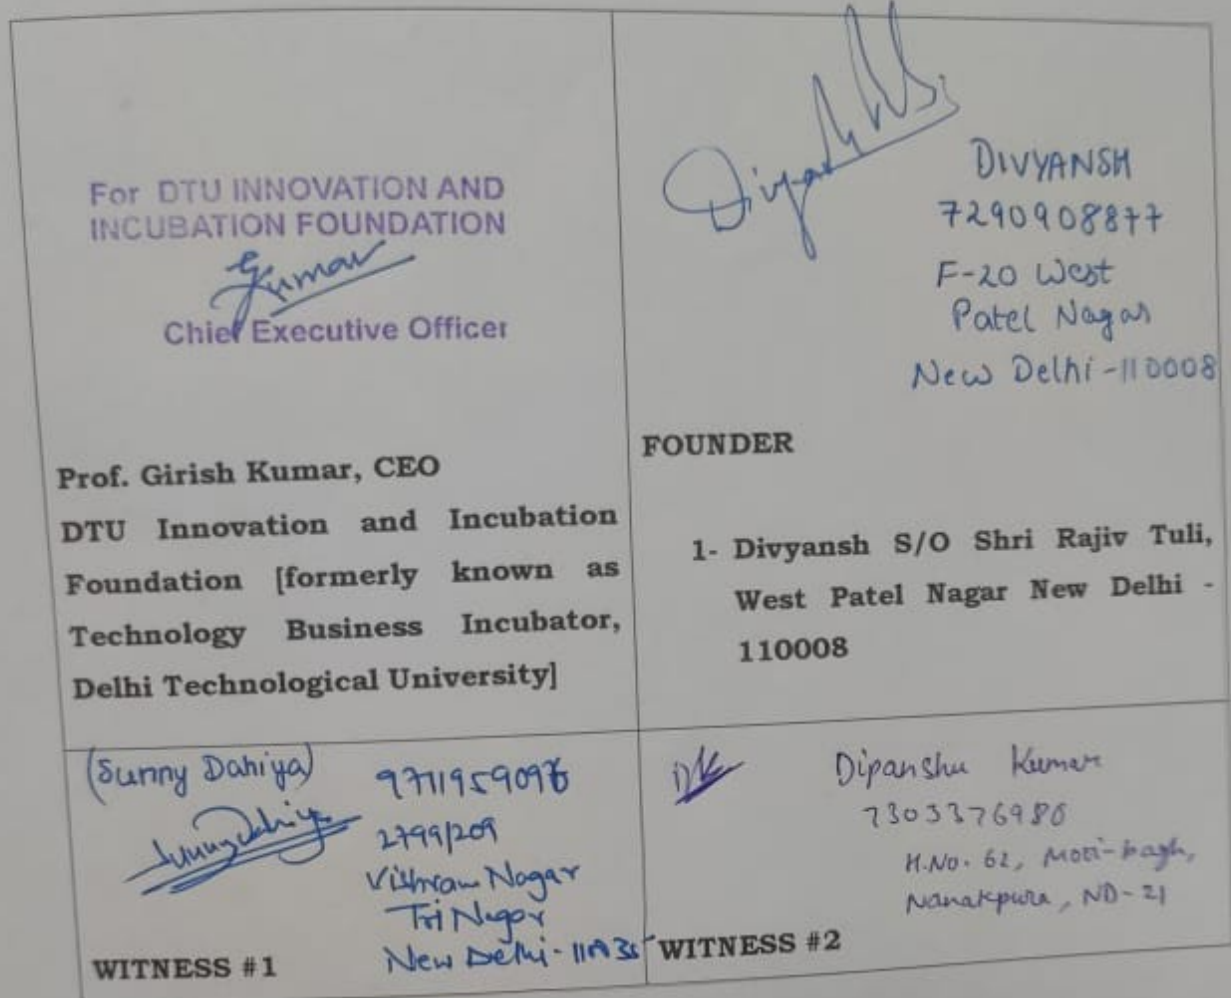 For DTU INNOVATION AND
INCUBATION FOUNDATION
Kumar
Chief Executive Officer
Prof. Girish Kumar, CEO
DTU Innovation and Incubation
Foundation [formerly known as
Technology Business Incubator,
Delhi Technological University]
DIVYANSH
7290908877
F-20 West
Patel Nagar
New Delhi-110008
FOUNDER
1- Divyansh S/O Shri Rajiv Tuli,
West Patel Nagar New Delhi -
110008
(Sunny Dahiya)
Sunny Dahiya
2799/209
Vishram Nagar
Tri Nagar
New Delhi-110035
WITNESS #1
Dipanshu Kumar
7303376986
H.No. 62, Moti-bagh,
Nanakpura, ND-21
WITNESS #2